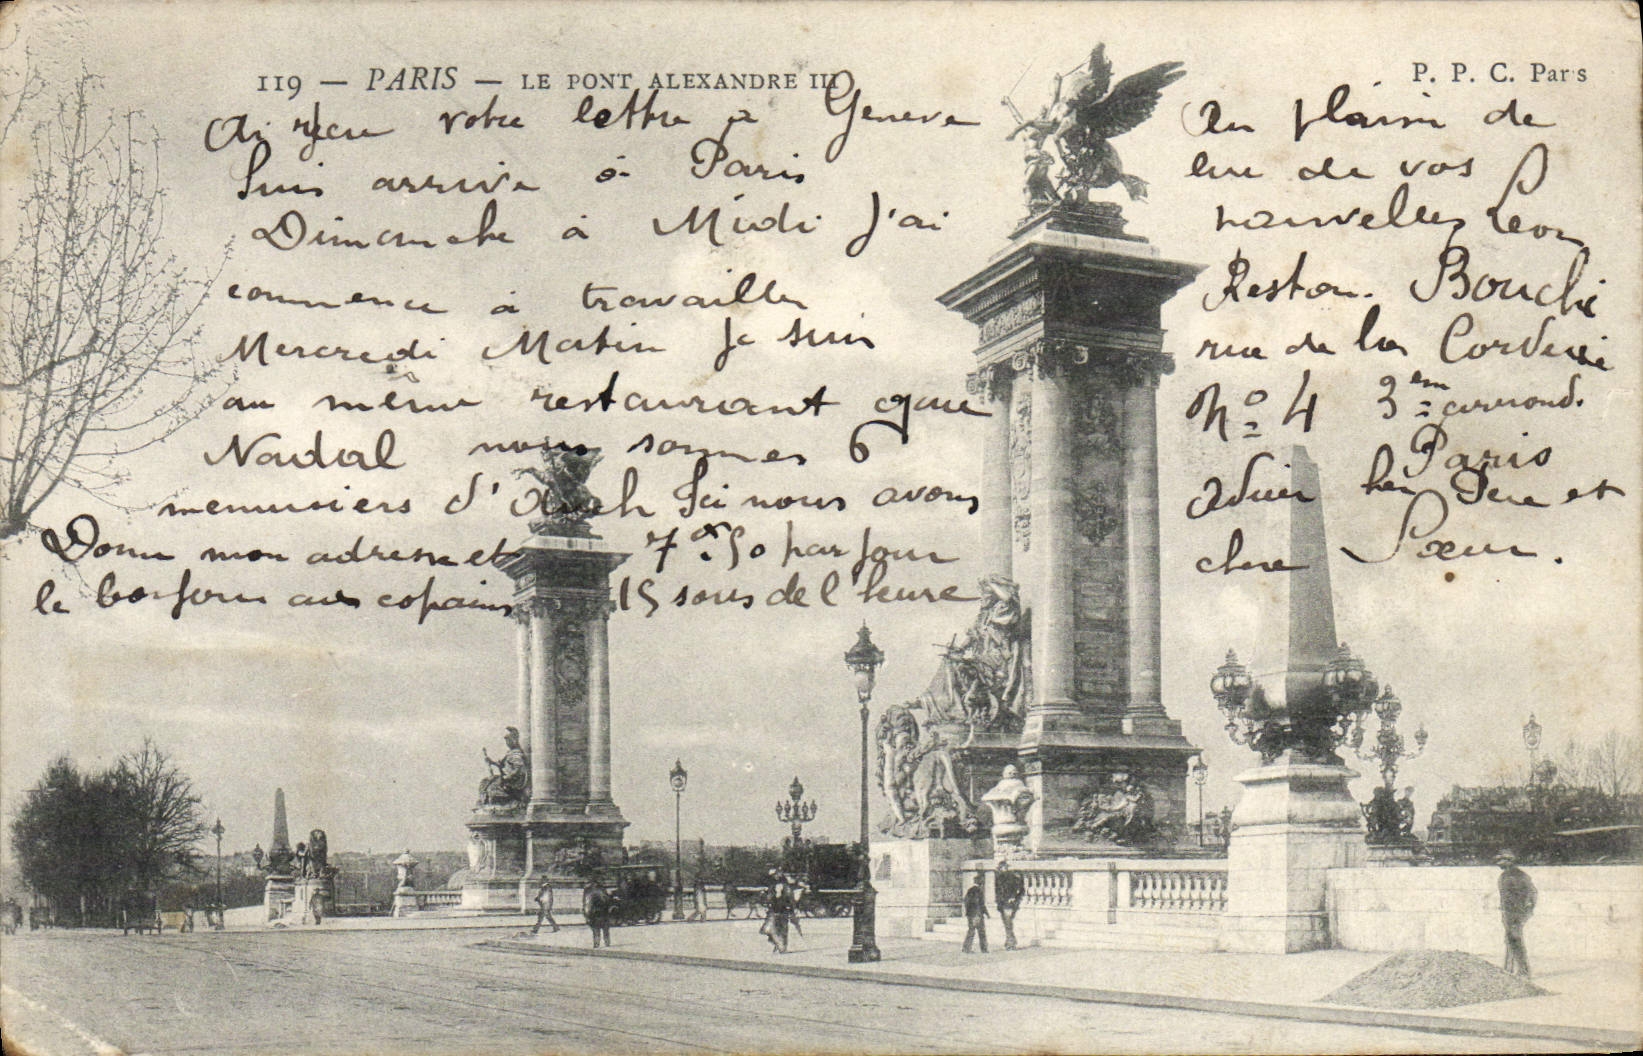 119 — PARIS — LE PONT ALEXANDRE III
P. P. C. Paris
Ai reçu votre lettre a Geneve
Suis arrive à Paris
Dimanche à Midi J'ai
commence à travailler
Mercredi Matin Je suis
au même restaurant que
Nadal nous sommes 6
menuisiers d'Auch Ici nous avons
7f.50 par jour
15 sous de l'heure
Donne mon adresse et
le bonjour aux copains
Au plaisir de
lire de vos
nouvelles Leon
Restau. Bouchi
rue de la Corderie
No 4 3em arrond.
Paris
Adieu cher Pere et
chere Sœur.